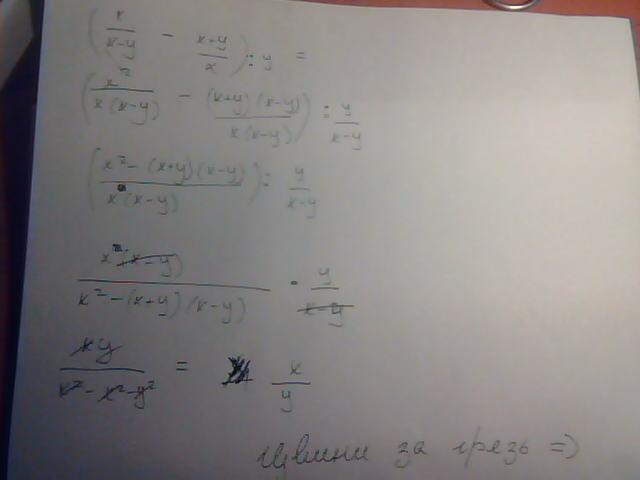 (x/(x-y) - (x+y)/x) : y =
(x²/(x(x-y)) - ((x+y)(x-y))/(x(x-y))) : y/(x-y)
((x²-(x+y)(x-y))/(x(x-y))) : y/(x-y)
x(x-y)/(x²-(x+y)(x-y)) · y/(x-y)
xy/(x²-x²-y²) = x/y
Извини за грязь =)